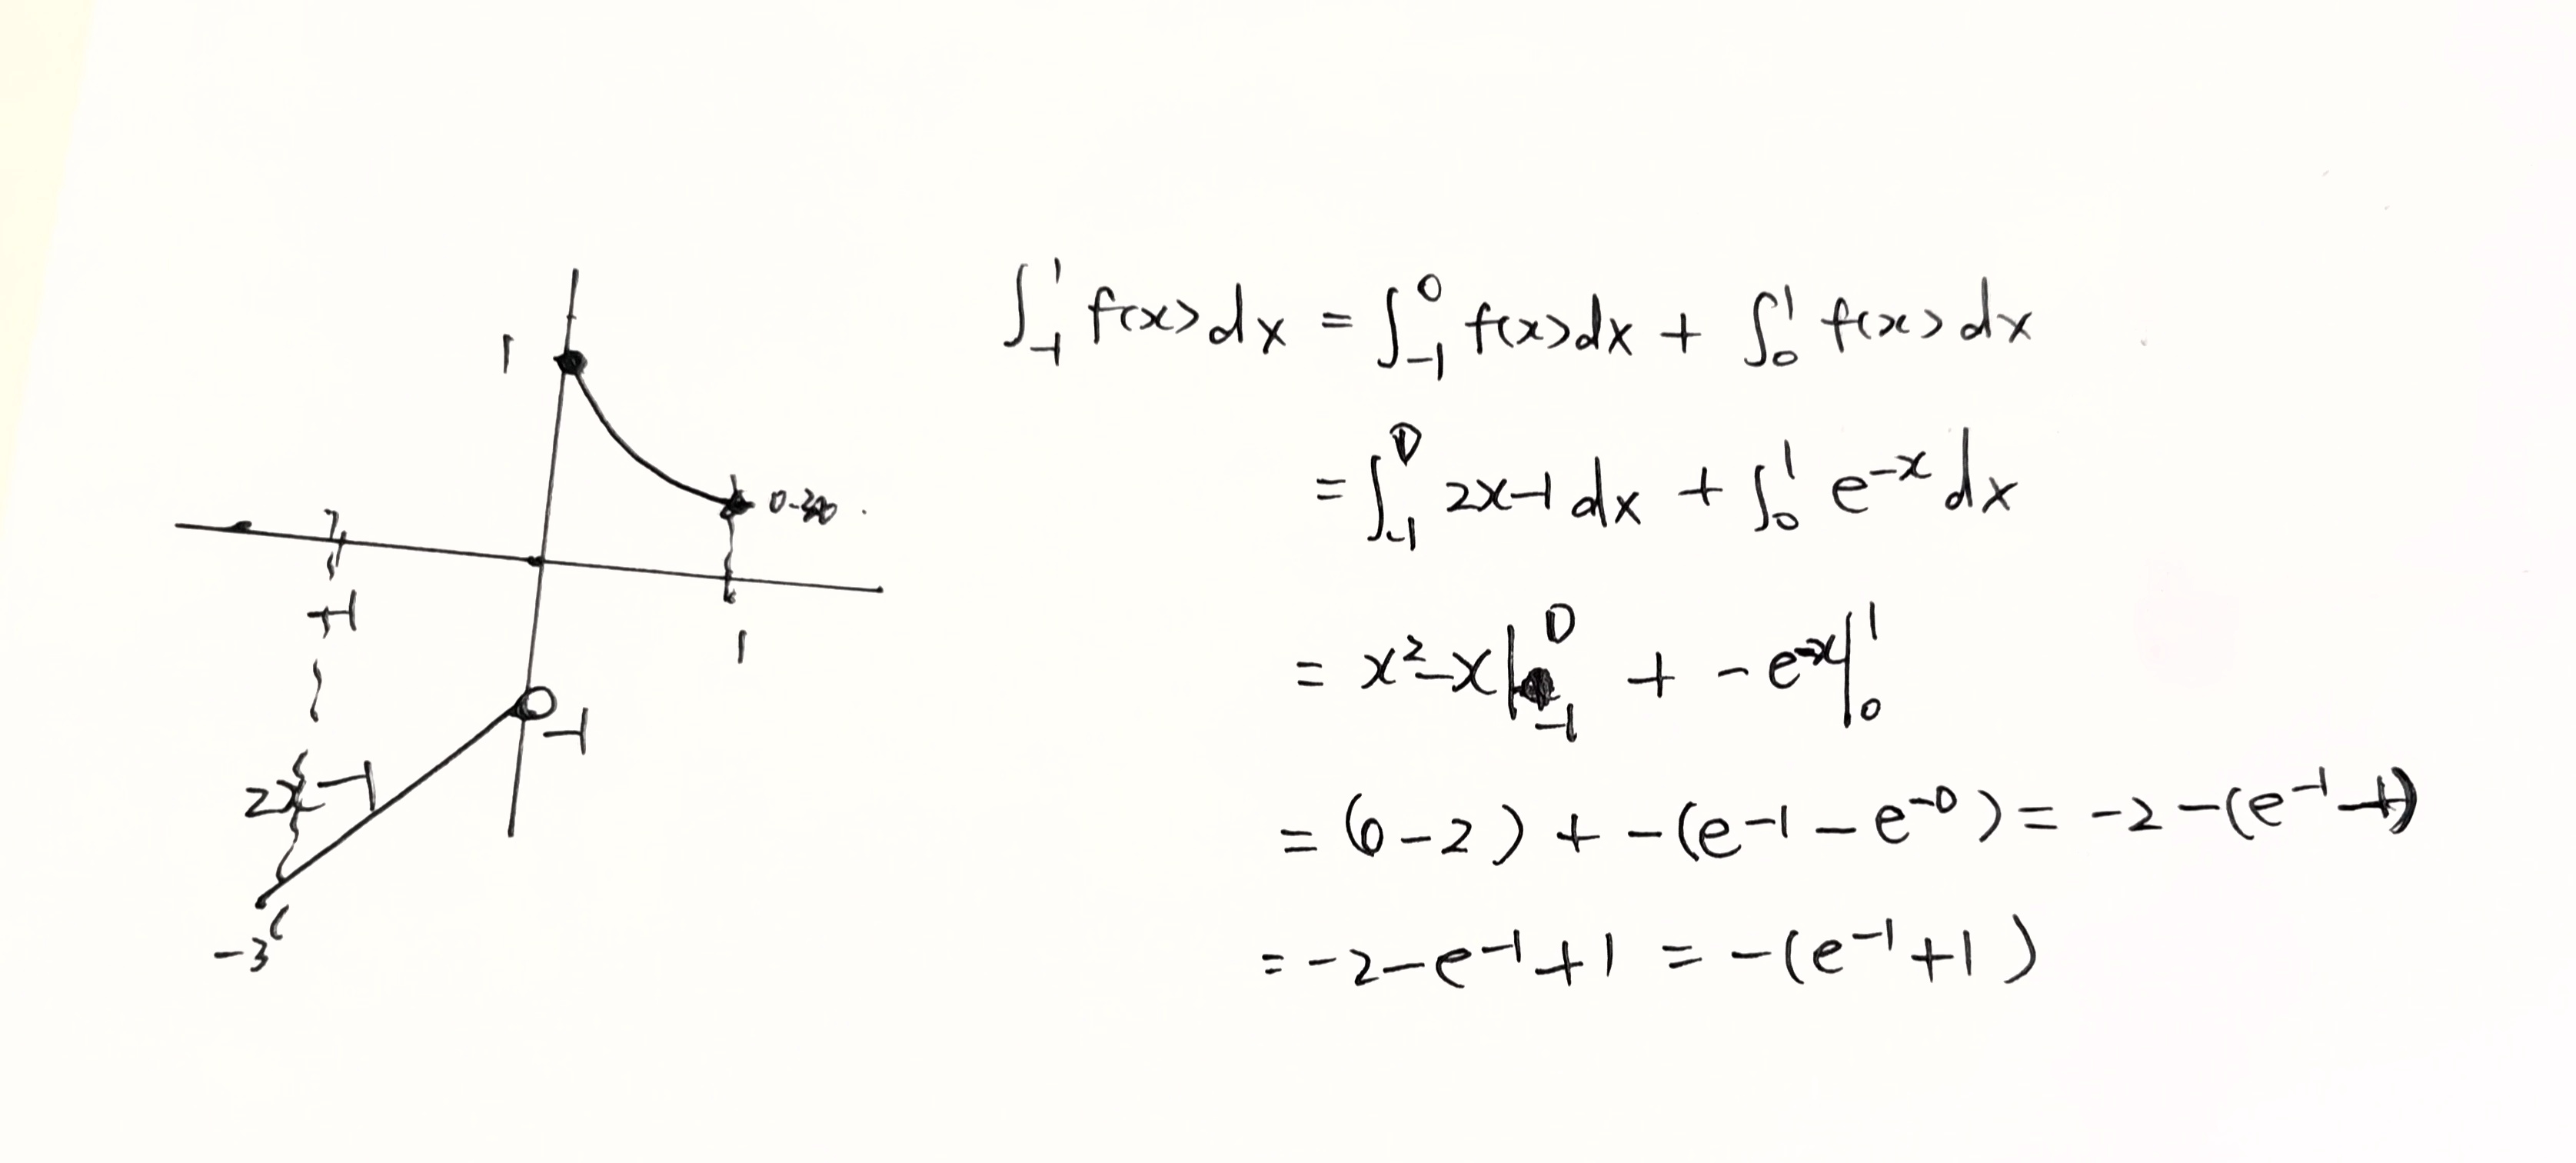 1
0-3
-1
1
-1
2x-1
-3
∫₋₁¹ f(x)dx = ∫₋₁⁰ f(x)dx + ∫₀¹ f(x)dx
= ∫₋₁⁰ 2x-1 dx + ∫₀¹ e⁻ˣ dx
= x²-x|₋₁⁰ + -e⁻ˣ|₀¹
= (0-2) + -(e⁻¹ - e⁻⁰) = -2 -(e⁻¹-1)
= -2-e⁻¹+1 = -(e⁻¹+1)